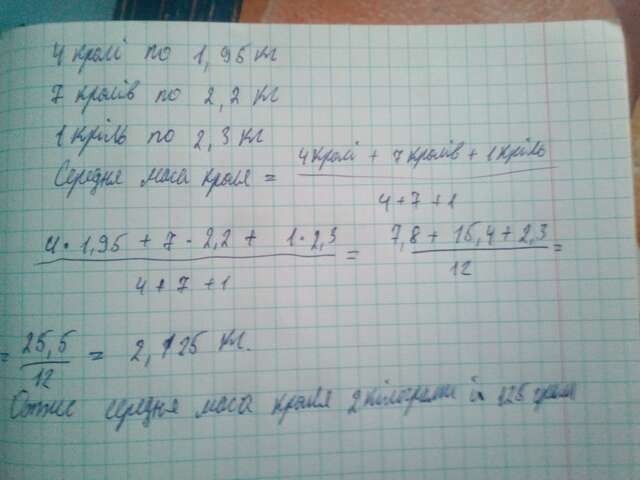 4 кролі по 1,95 кг
7 кролів по 2,2 кг
1 кріль по 2,3 кг
Середня маса кроля = (4 кролі + 7 кролів + 1 кріль) / (4+7+1)
(4 · 1,95 + 7 · 2,2 + 1 · 2,3) / (4 + 7 + 1) = (7,8 + 15,4 + 2,3) / 12 =
= 25,5 / 12 = 2,125 кг.
Отже середня маса кроля 2 кілограми і 125 грам